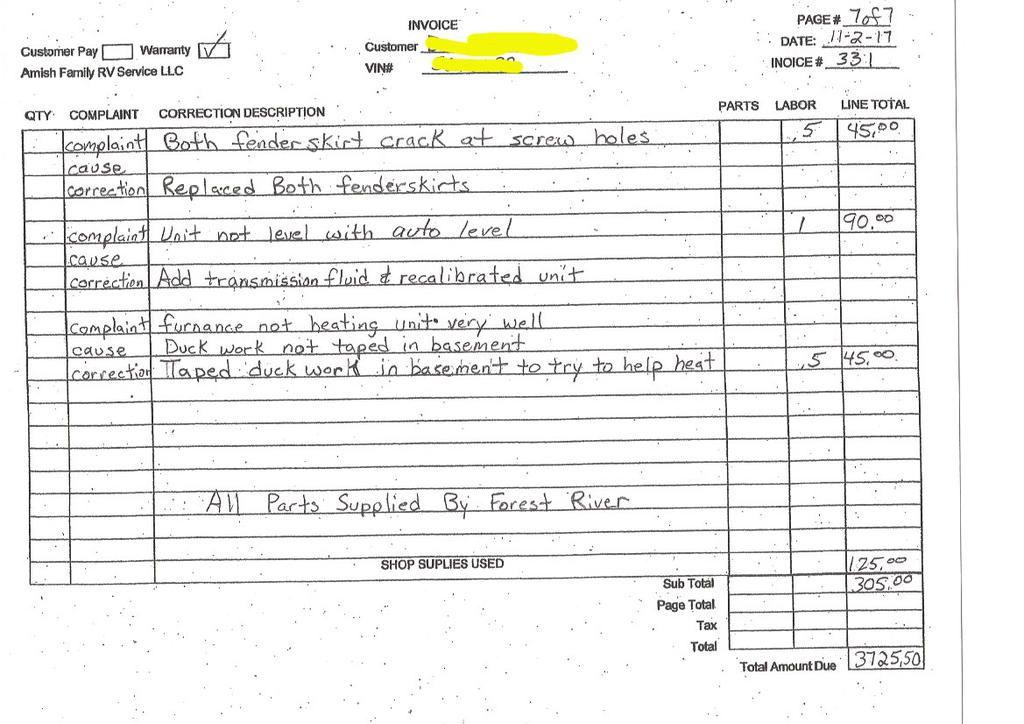 INVOICE
PAGE# 7of7
Customer Pay Warranty ✓
Customer
DATE: 11-2-17
Amish Family RV Service LLC
VIN#
INOICE# 331
QTY COMPLAINT CORRECTION DESCRIPTION PARTS LABOR LINE TOTAL
complaint Both fenderskirt crack at screw holes .5 45.00
cause
correction Replaced Both fenderskirts
complaint Unit not level with auto level 1 90.00
cause
correction Add transmission fluid & recalibrated unit
complaint furnance not heating unit very well
cause Duck work not taped in basement
correction Taped duck work in basement to try to help heat .5 45.00
All Parts Supplied By Forest River
SHOP SUPLIES USED 125.00
Sub Total 305.00
Page Total
Tax
Total
Total Amount Due 3725.50